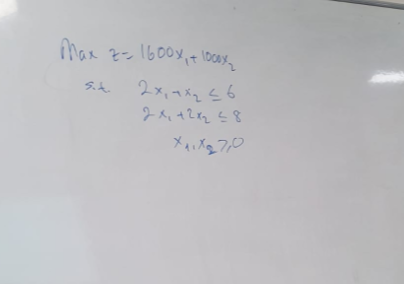 Max z = 1600x₁ + 1000x₂
s.t. 2x₁ + x₂ ≤ 6
2x₁ + 2x₂ ≤ 8
x₁, x₂ ≥ 0